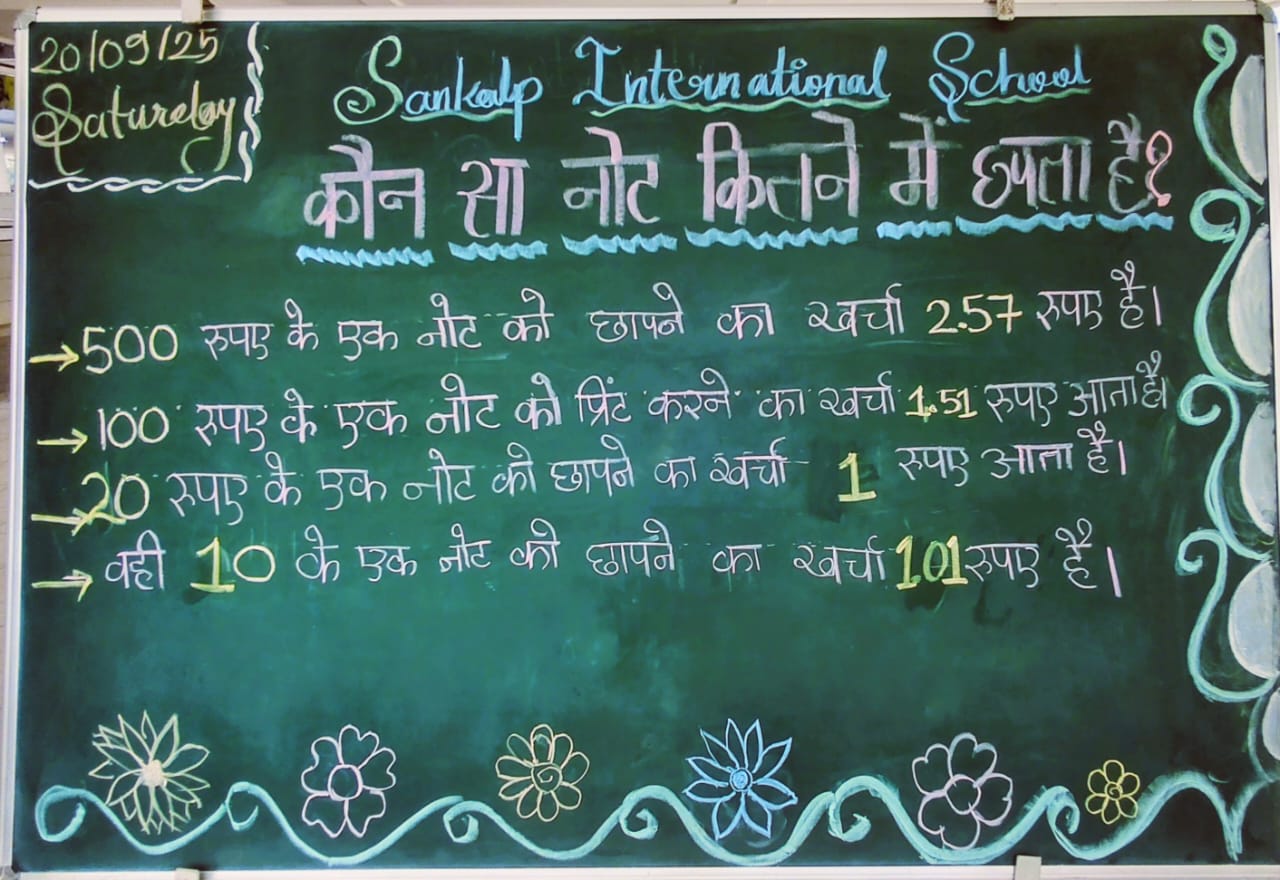 20/09/25
Saturday
Sankalp International School
कौन सा नोट कितने में छपता है?
→500 रुपए के एक नोट को छापने का खर्चा 2.57 रुपए है।
→100 रुपए के एक नोट को प्रिंट करने का खर्चा 1.51 रुपए आता है।
→20 रुपए के एक नोट को छापने का खर्चा 1 रुपए आता है।
→ वही 10 के एक नोट को छापने का खर्चा 1.01 रुपए है।